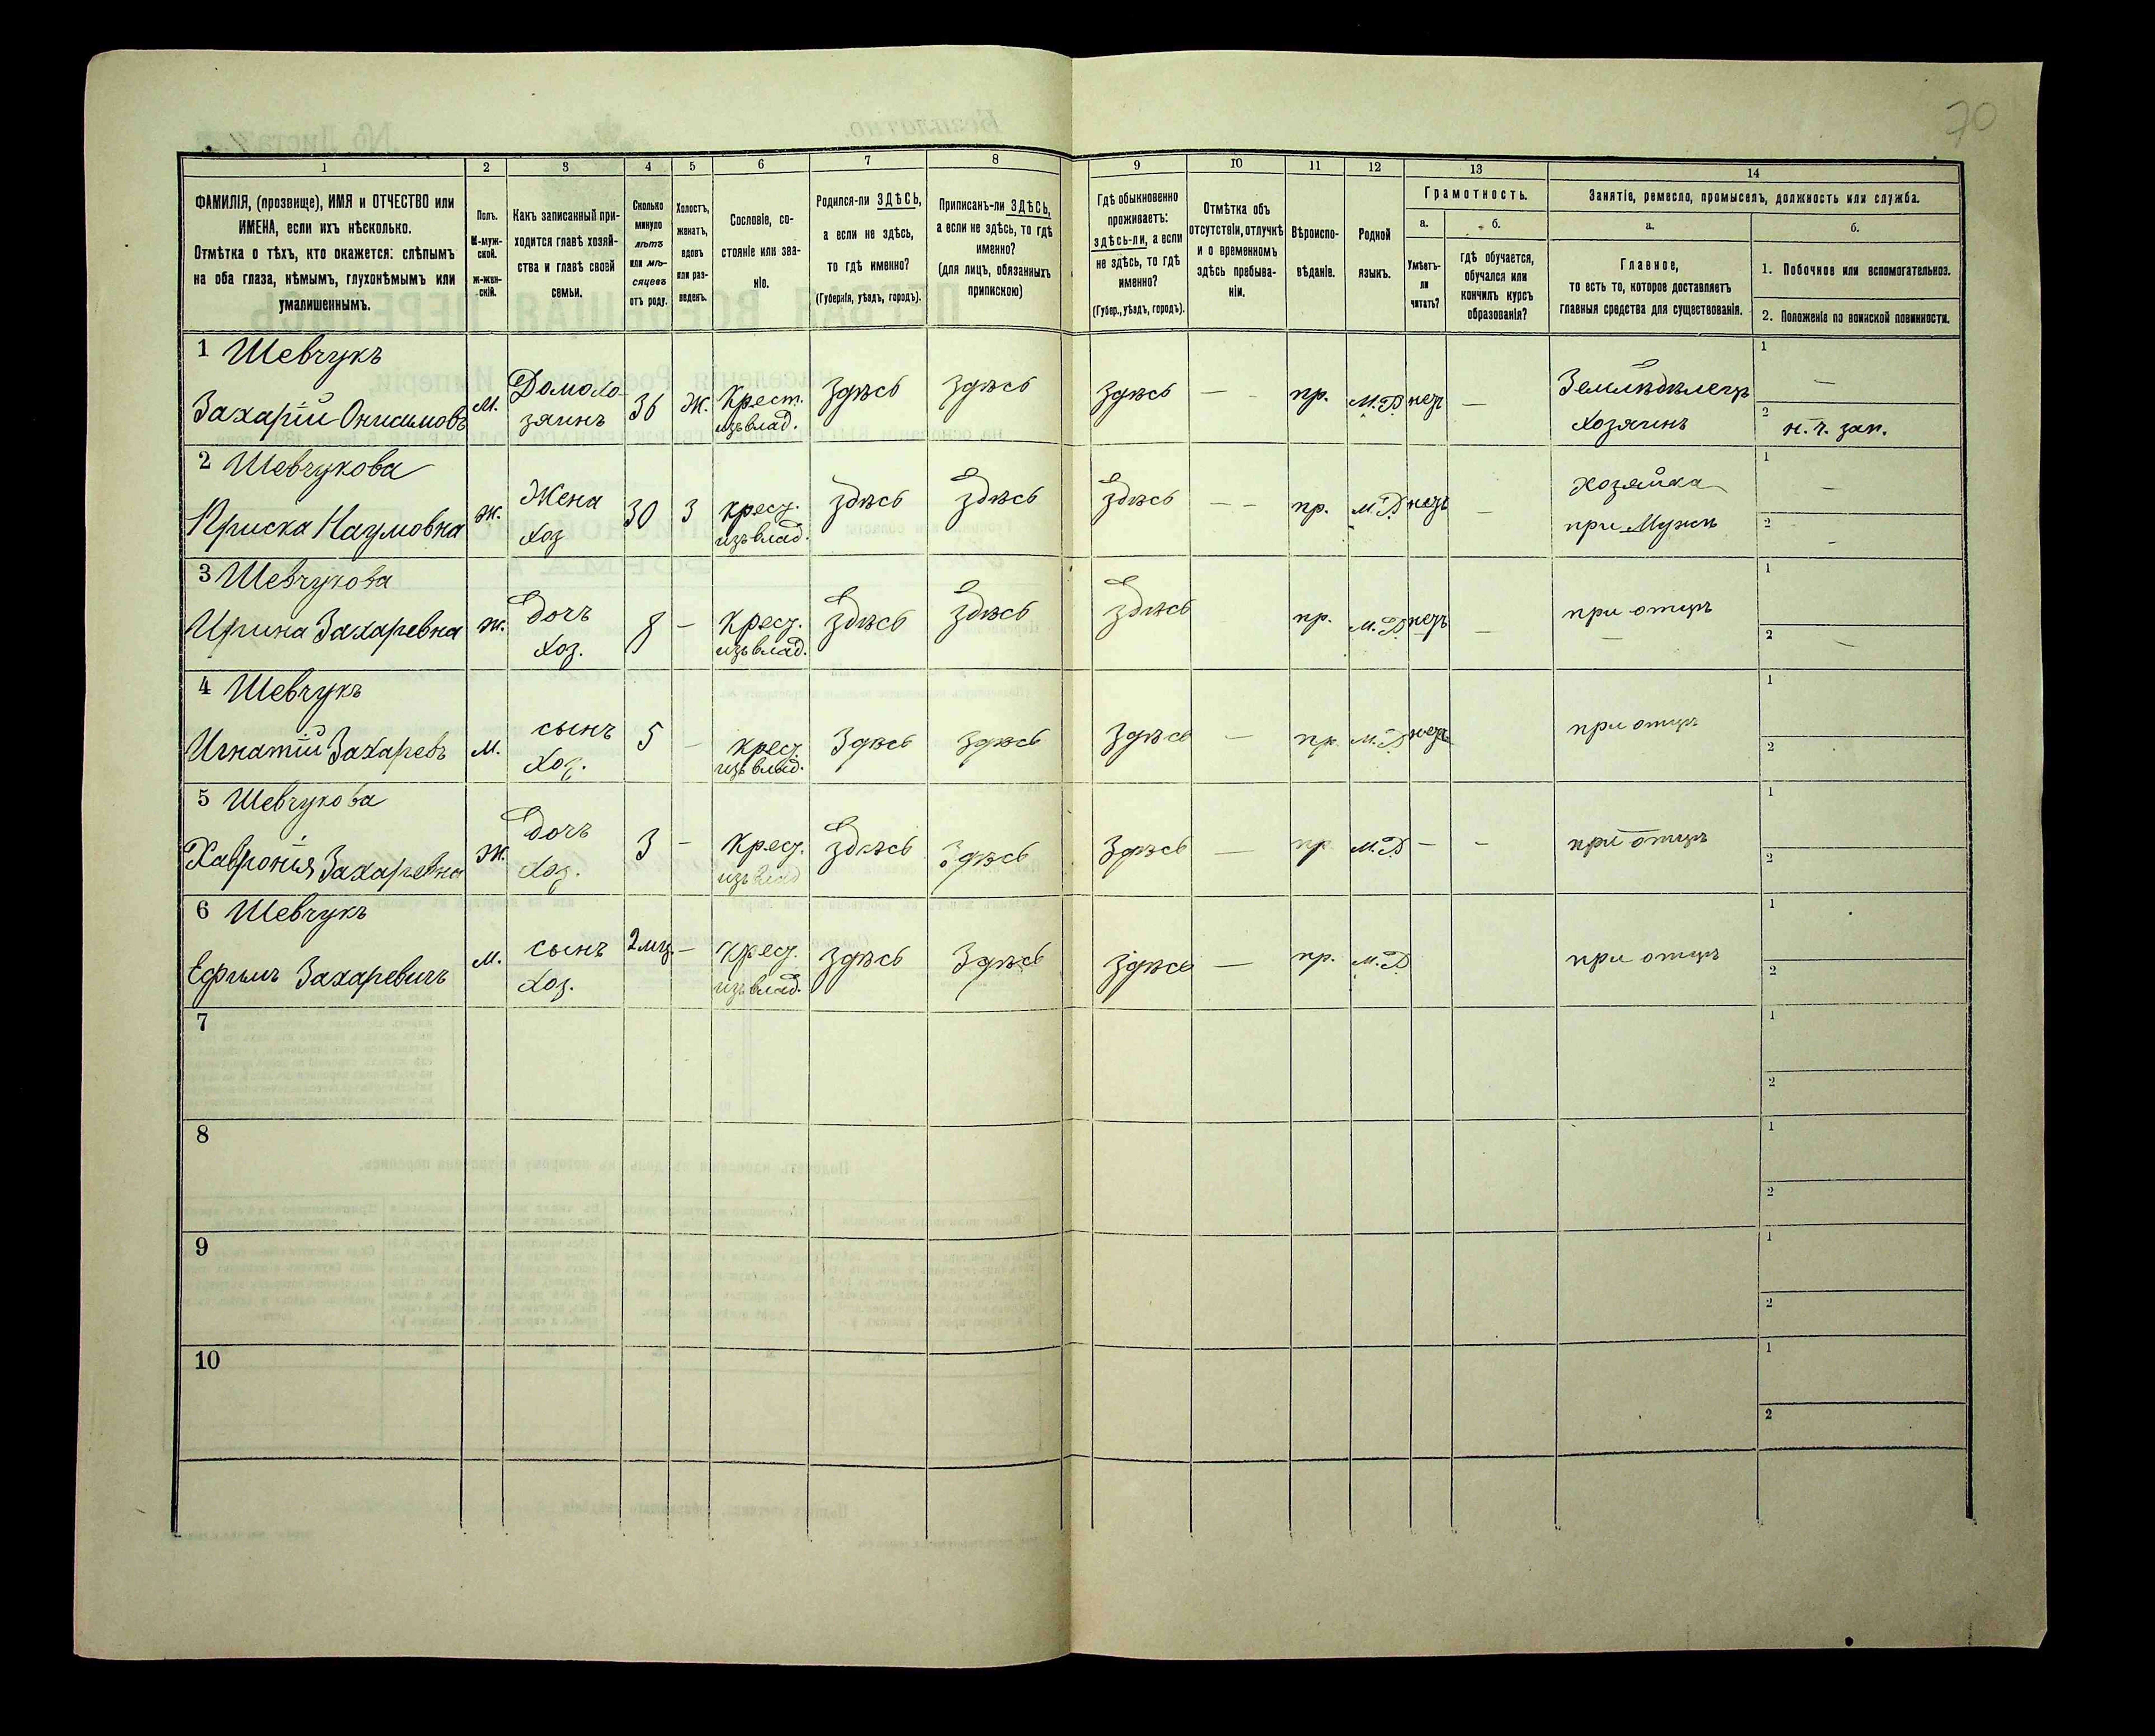 70
1 2 3 4 5 6 7 8 9 10 11 12 13 14
ФАМИЛІЯ, (прозвище), ИМЯ и ОТЧЕСТВО или
ИМЕНА, если ихъ нѣсколько.
Отмѣтка о тѣхъ, кто окажется: слѣпымъ
на оба глаза, нѣмымъ, глухонѣмымъ или
умалишеннымъ.
Полъ.
М-муж-
ской.
Ж-жен-
скій.
Какъ записанный при-
ходится главѣ хозяй-
ства и главѣ своей
семьи.
Сколько
минуло
лѣтъ
или мѣ-
сяцевъ
отъ роду.
Холостъ,
женатъ,
вдовъ
или раз-
веденъ.
Сословіе, со-
стояніе или зва-
ніе.
Родился-ли ЗДѢСЬ,
а если не здѣсь,
то гдѣ именно?
(Губернія, уѣздъ, городъ).
Приписанъ-ли ЗДѢСЬ,
а если не здѣсь, то гдѣ
именно?
(для лицъ, обязанныхъ
припискою)
Гдѣ обыкновенно
проживаетъ:
здѣсь-ли, а если
не здѣсь, то гдѣ
именно?
(Губер., уѣздъ, городъ).
Отмѣтка объ
отсутствіи, отлучкѣ
и о временномъ
здѣсь пребыва-
ніи.
Вѣроиспо-
вѣданіе.
Родной
языкъ.
Грамотность.
а. б.
Умѣетъ-
ли
читать?
гдѣ обучается,
обучался или
кончилъ курсъ
образованія?
Занятіе, ремесло, промыселъ, должность или служба.
а. б.
Главное,
то есть то, которое доставляетъ
главныя средства для существованія.
1. Побочное или вспомогательное.
2. Положеніе по воинской повинности.
1 Шевчукъ
Захарій Онисимовъ М. Домохо-
зяинъ 36 Ж. Крест.
изъ влад. Здѣсь Здѣсь Здѣсь — пр. М.Р. нетъ — Земледѣлецъ
Хозяинъ 1 —
2 н. ч. зап.
2 Шевчукова
Приска Наумовна Ж. Жена
Хоз 30 З крест.
изъ влад. Здѣсь Здѣсь Здѣсь — — пр. М.Р. нетъ — Хозяйка
при Мужѣ 1 —
2 -
3 Шевчукова
Ирина Захаревна Ж. Дочь
Хоз. 8 — Крест.
изъ влад. Здѣсь Здѣсь Здѣсь пр. М.Р. нетъ — при отцѣ
1
2 —
4 Шевчукъ
Игнатій Захаревъ М. сынъ
Хоз. 5 — крест.
изъ влад. Здѣсь Здѣсь Здѣсь — пр М.Р. нетъ при отцѣ
1
2
5 Шевчукова
Хавронія Захаревна Ж. Дочь
Хоз. 3 — Крест.
изъ влад Здѣсь Здѣсь Здѣсь — пр М.Р — — при отцѣ
1
2
6 Шевчукъ
Ефимъ Захаревичъ М. сынъ
Хоз. 2 мц. — Крест.
изъ влад. Здѣсь Здѣсь Здѣсь — пр. М.Р. при отцѣ
1
2
7
1
2
8
1
2
9
1
2
10
1
2